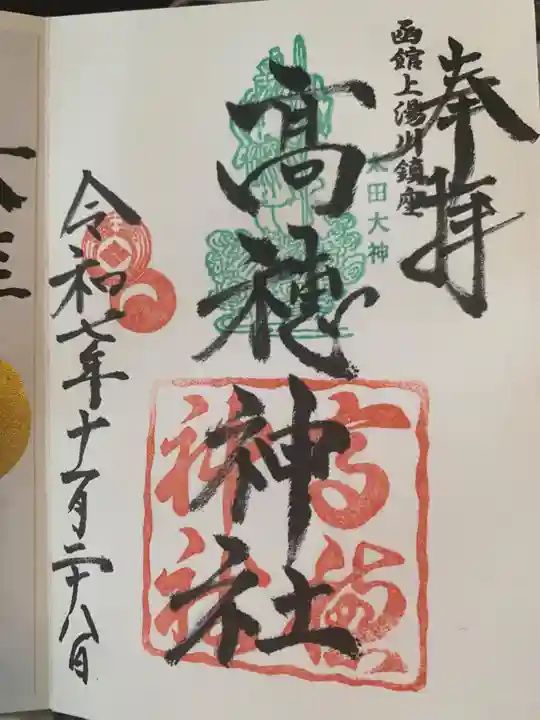 奉拝
函館上湯川鎮座
太田大神
髙穂神社
高穂
神社
令和七年十一月二十八日